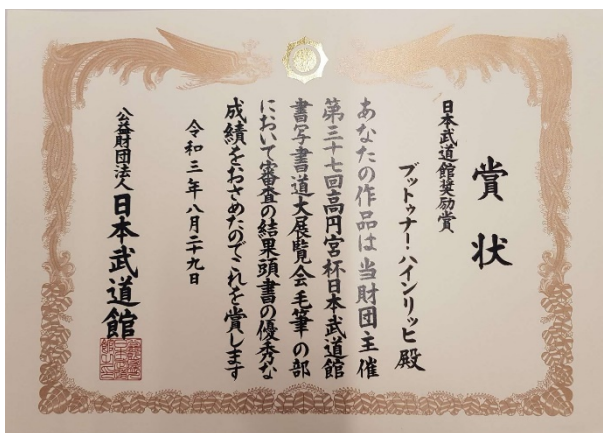 賞状
日本武道館奨励賞
ブットゥナー・ハインリッヒ 殿
あなたの作品は当財団主催
第三十七回高円宮杯日本武道館
書写書道大展覧会毛筆の部
において審査の結果頭書の優秀な
成績をおさめたのでこれを賞します
令和三年八月二十九日
公益財団法人 日本武道館